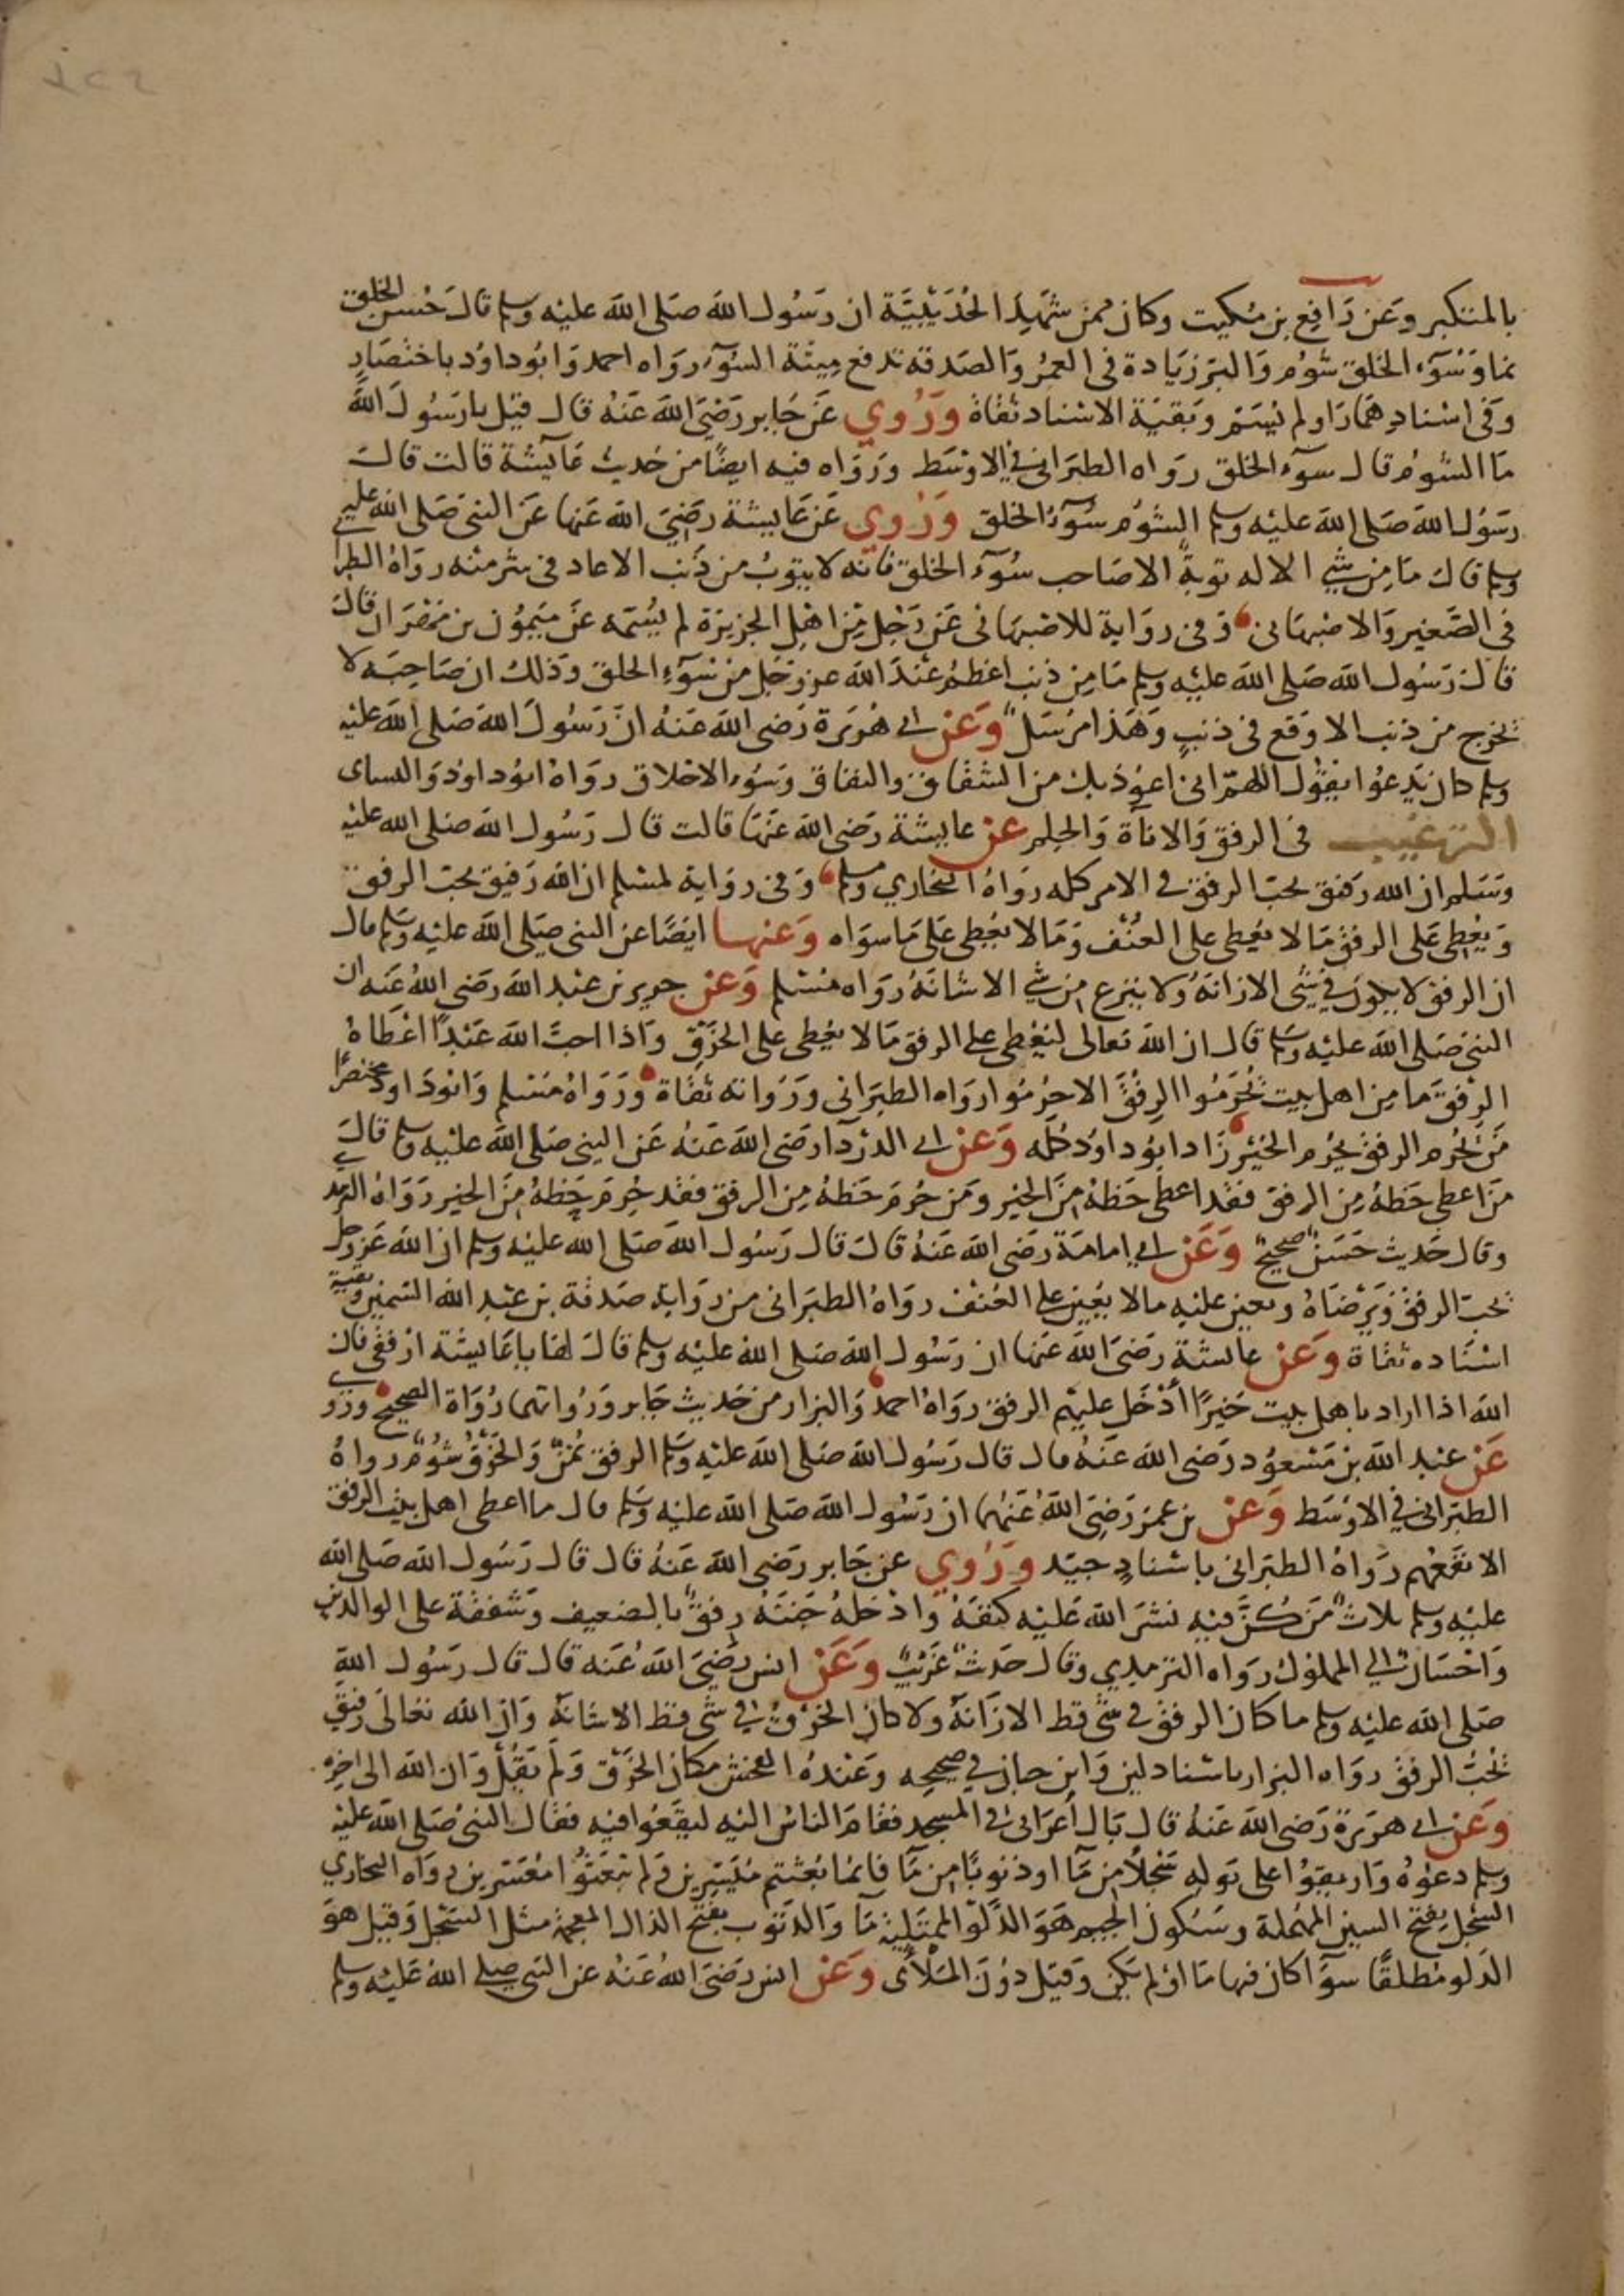 بالمتكبر وعن رافع بن مكيث وكان ممن شهد الحديبية ان رسول الله صلى الله عليه وسلم قال حسن الخلق
نما وسوء الخلق شوم والبر زيادة في العمر والصدقة تدفع ميتة السوء رواه احمد وابو داود باختصار
وفي اسنادهما راو لم يسم وبقية الاسناد ثقاة وروي عن جابر رضي الله عنه قال قيل يا رسول الله
ما الشوم قال سوء الخلق رواه الطبراني في الاوسط ورواه فيه ايضا من حديث عايشة قالت قال
رسول الله صلى الله عليه وسلم الشوم سوء الخلق وروي عن عايشة رضي الله عنها عن النبي صلى الله عليه
وسلم قال ما من شي الا له توبة الا صاحب سوء الخلق فانه لا يتوب من ذنب الا عاد في شر منه رواه الطبرا
في الصغير والاصبهاني وفي رواية للاصبهاني عن رجل من اهل الجزيرة لم يسمه عن ميمون بن مهران قال
قال رسول الله صلى الله عليه وسلم ما من ذنب اعظم عند الله عز وجل من سوء الخلق وذلك ان صاحبه لا
يخرج من ذنب الا وقع في ذنب وهذا مرسل وعن ابي هريرة رضي الله عنه ان رسول الله صلى الله عليه
وسلم كان يدعوا يقول اللهم اني اعوذ بك من الشقاق والنفاق وسوء الاخلاق رواه ابو داود والنساي
الترغيب في الرفق والاناة والحلم عن عايشة رضي الله عنها قالت قال رسول الله صلى الله عليه
وسلم ان الله رفيق يحب الرفق في الامر كله رواه البخاري ومسلم وفي رواية لمسلم ان الله رفيق يحب الرفق
ويعطي على الرفق ما لا يعطي على العنف وما لا يعطي على ما سواه وعنها ايضا عن النبي صلى الله عليه وسلم قال
ان الرفق لا يكون في شي الا زانه ولا ينزع من شي الا شانه رواه مسلم وعن جرير بن عبد الله رضي الله عنه ان
النبي صلى الله عليه وسلم قال ان الله تعالى ليعطي على الرفق ما لا يعطي على الخرق واذا احب الله عبدا اعطاه
الرفق ما من اهل بيت يحرموا الرفق الا حرموا رواه الطبراني ورواته ثقاة ورواه مسلم وابو داود مختصرا
من يحرم الرفق يحرم الخير زاد ابو داود كله وعن ابي الدرداء رضي الله عنه عن النبي صلى الله عليه وسلم قال
من اعطي حظه من الرفق فقد اعطي حظه من الخير ومن حرم حظه من الرفق فقد حرم حظه من الخير رواه الترمذي
وقال حديث حسن صحيح وعن ابي امامة رضي الله عنه قال قال رسول الله صلى الله عليه وسلم ان الله عز وجل
يحب الرفق ويرضاه ويعين عليه ما لا يعين على العنف رواه الطبراني من رواية صدقة بن عبد الله السمين وبقية
اسناده ثقاة وعن عايشة رضي الله عنها ان رسول الله صلى الله عليه وسلم قال لها يا عايشة ارفقي فان
الله اذا اراد باهل بيت خيرا أدخل عليهم الرفق رواه احمد والبزار من حديث جابر ورواتهما رواة الصحيح وروي
عن عبد الله بن مسعود رضي الله عنه قال قال رسول الله صلى الله عليه وسلم الرفق يمن والخرق شوم رواه
الطبراني في الاوسط وعن بن عمر رضي الله عنهما ان رسول الله صلى الله عليه وسلم قال ما اعطي اهل بيت الرفق
الا نفعهم رواه الطبراني باسناد جيد وروي عن جابر رضي الله عنه قال قال رسول الله صلى الله
عليه وسلم ثلاث من كن فيه نشر الله عليه كنفه وادخله جنته رفق بالضعيف وشفقة على الوالدين
واحسان الى المملوك رواه الترمذي وقال حديث غريب وعن انس رضي الله عنه قال قال رسول الله
صلى الله عليه وسلم ما كان الرفق في شي قط الا زانه ولا كان الخرق في شي قط الا شانه وان الله تعالى رفيق
يحب الرفق رواه البزار باسناد لين وابن حبان في صحيحه وعنده الفحش مكان الخرق ولم يقل وان الله الى اخره
وعن ابي هريرة رضي الله عنه قال بال أعرابي في المسجد فقام الناس اليه ليقعوا فيه فقال النبي صلى الله عليه
وسلم دعوه واريقوا على بوله سجلا من ما او ذنوبا من ما فانما بعثتم ميسرين ولم تبعثوا معسرين رواه البخاري
السجل بفتح السين المهملة وسكون الجيم هو الدلو الممتلية ما والذنوب بفتح الذال المعجمة مثل السجل وقيل هو
الدلو مطلقا سواء كان فيها ما او لم يكن وقيل دون الملأى وعن انس رضي الله عنه عن النبي صلى الله عليه وسلم